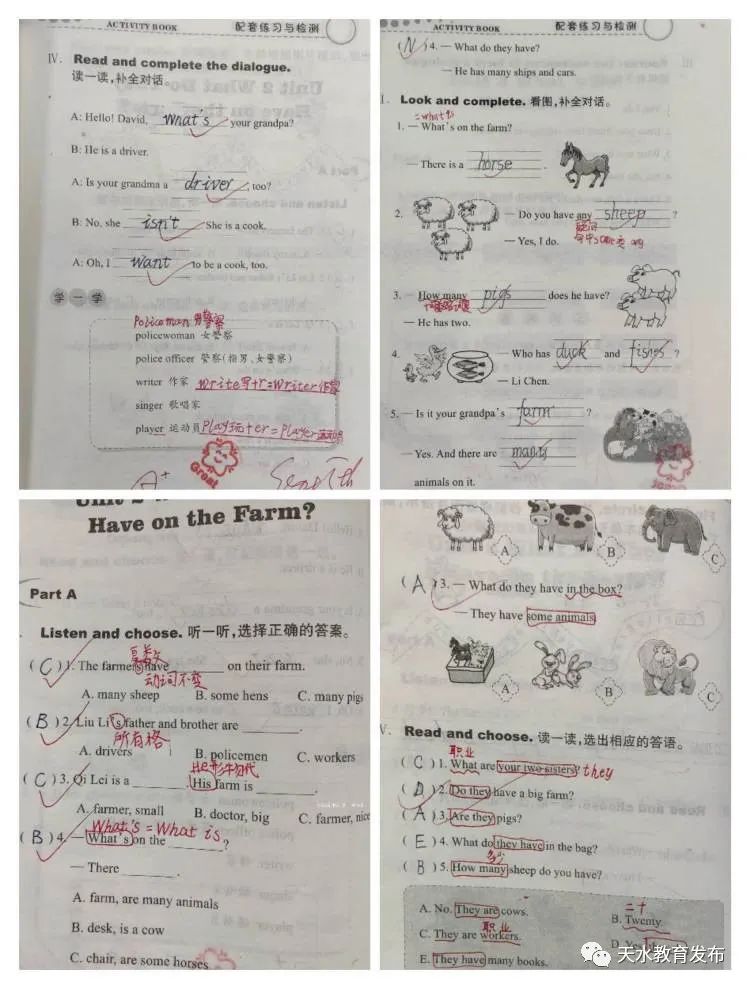 ACTIVITY BOOK 配套练习与检测
IV. Read and complete the dialogue.
读一读,补全对话。
A: Hello! David, what's your grandpa?
B: He is a driver.
A: Is your grandma a driver, too?
B: No, she isn't She is a cook.
A: Oh, I want to be a cook, too.
学一学
Policeman 男警察
policewoman 女警察
police officer 警察(指男、女警察)
writer 作家 write写+r=writer作家
singer 歌唱家
player 运动员 play玩+er=player运动员
A+
Great
ACTIVITY BOOK 配套练习与检测
(N) 4. — What do they have?
— He has many ships and cars.
Look and complete. 看图,补全对话。
1. — What's on the farm?
— There is a horse .
2. — Do you have any sheep ?
— Yes, I do.
3. — How many pigs does he have?
— He has two.
4. — Who has duck and fishes ?
— Li Chen.
5. — Is it your grandpa's farm ?
— Yes. And there are many
animals on it.
Have on the Farm?
Part A
Listen and choose. 听一听,选择正确的答案。
复数
(C) 1. The farmers have ______ on their farm.
动词不变
A. many sheep B. some hens C. many pigs
(B) 2. Liu Li's father and brother are ______.
所有格
A. drivers B. policemen C. workers
(C) 3. Qi Lei is a ______. His farm is ______.
A. farmer, small B. doctor, big C. farmer, nice
What's = What is
(B) 4. — What's on the ______?
— There ______.
A. farm, are many animals
B. desk, is a cow
C. chair, are some horses
A B C
(A) 3. — What do they have in the box?
— They have some animals
A B C
V. Read and choose. 读一读,选出相应的答语。
职业
(C) 1. What are your two sisters? they
(D) 2. Do they have a big farm?
(A) 3. Are they pigs?
(E) 4. What do they have in the bag?
(B) 5. How many sheep do you have?
A. No. They are cows.
二十
B. Twenty.
职业
C. They are workers.
E. They have many books.
天水教育发布